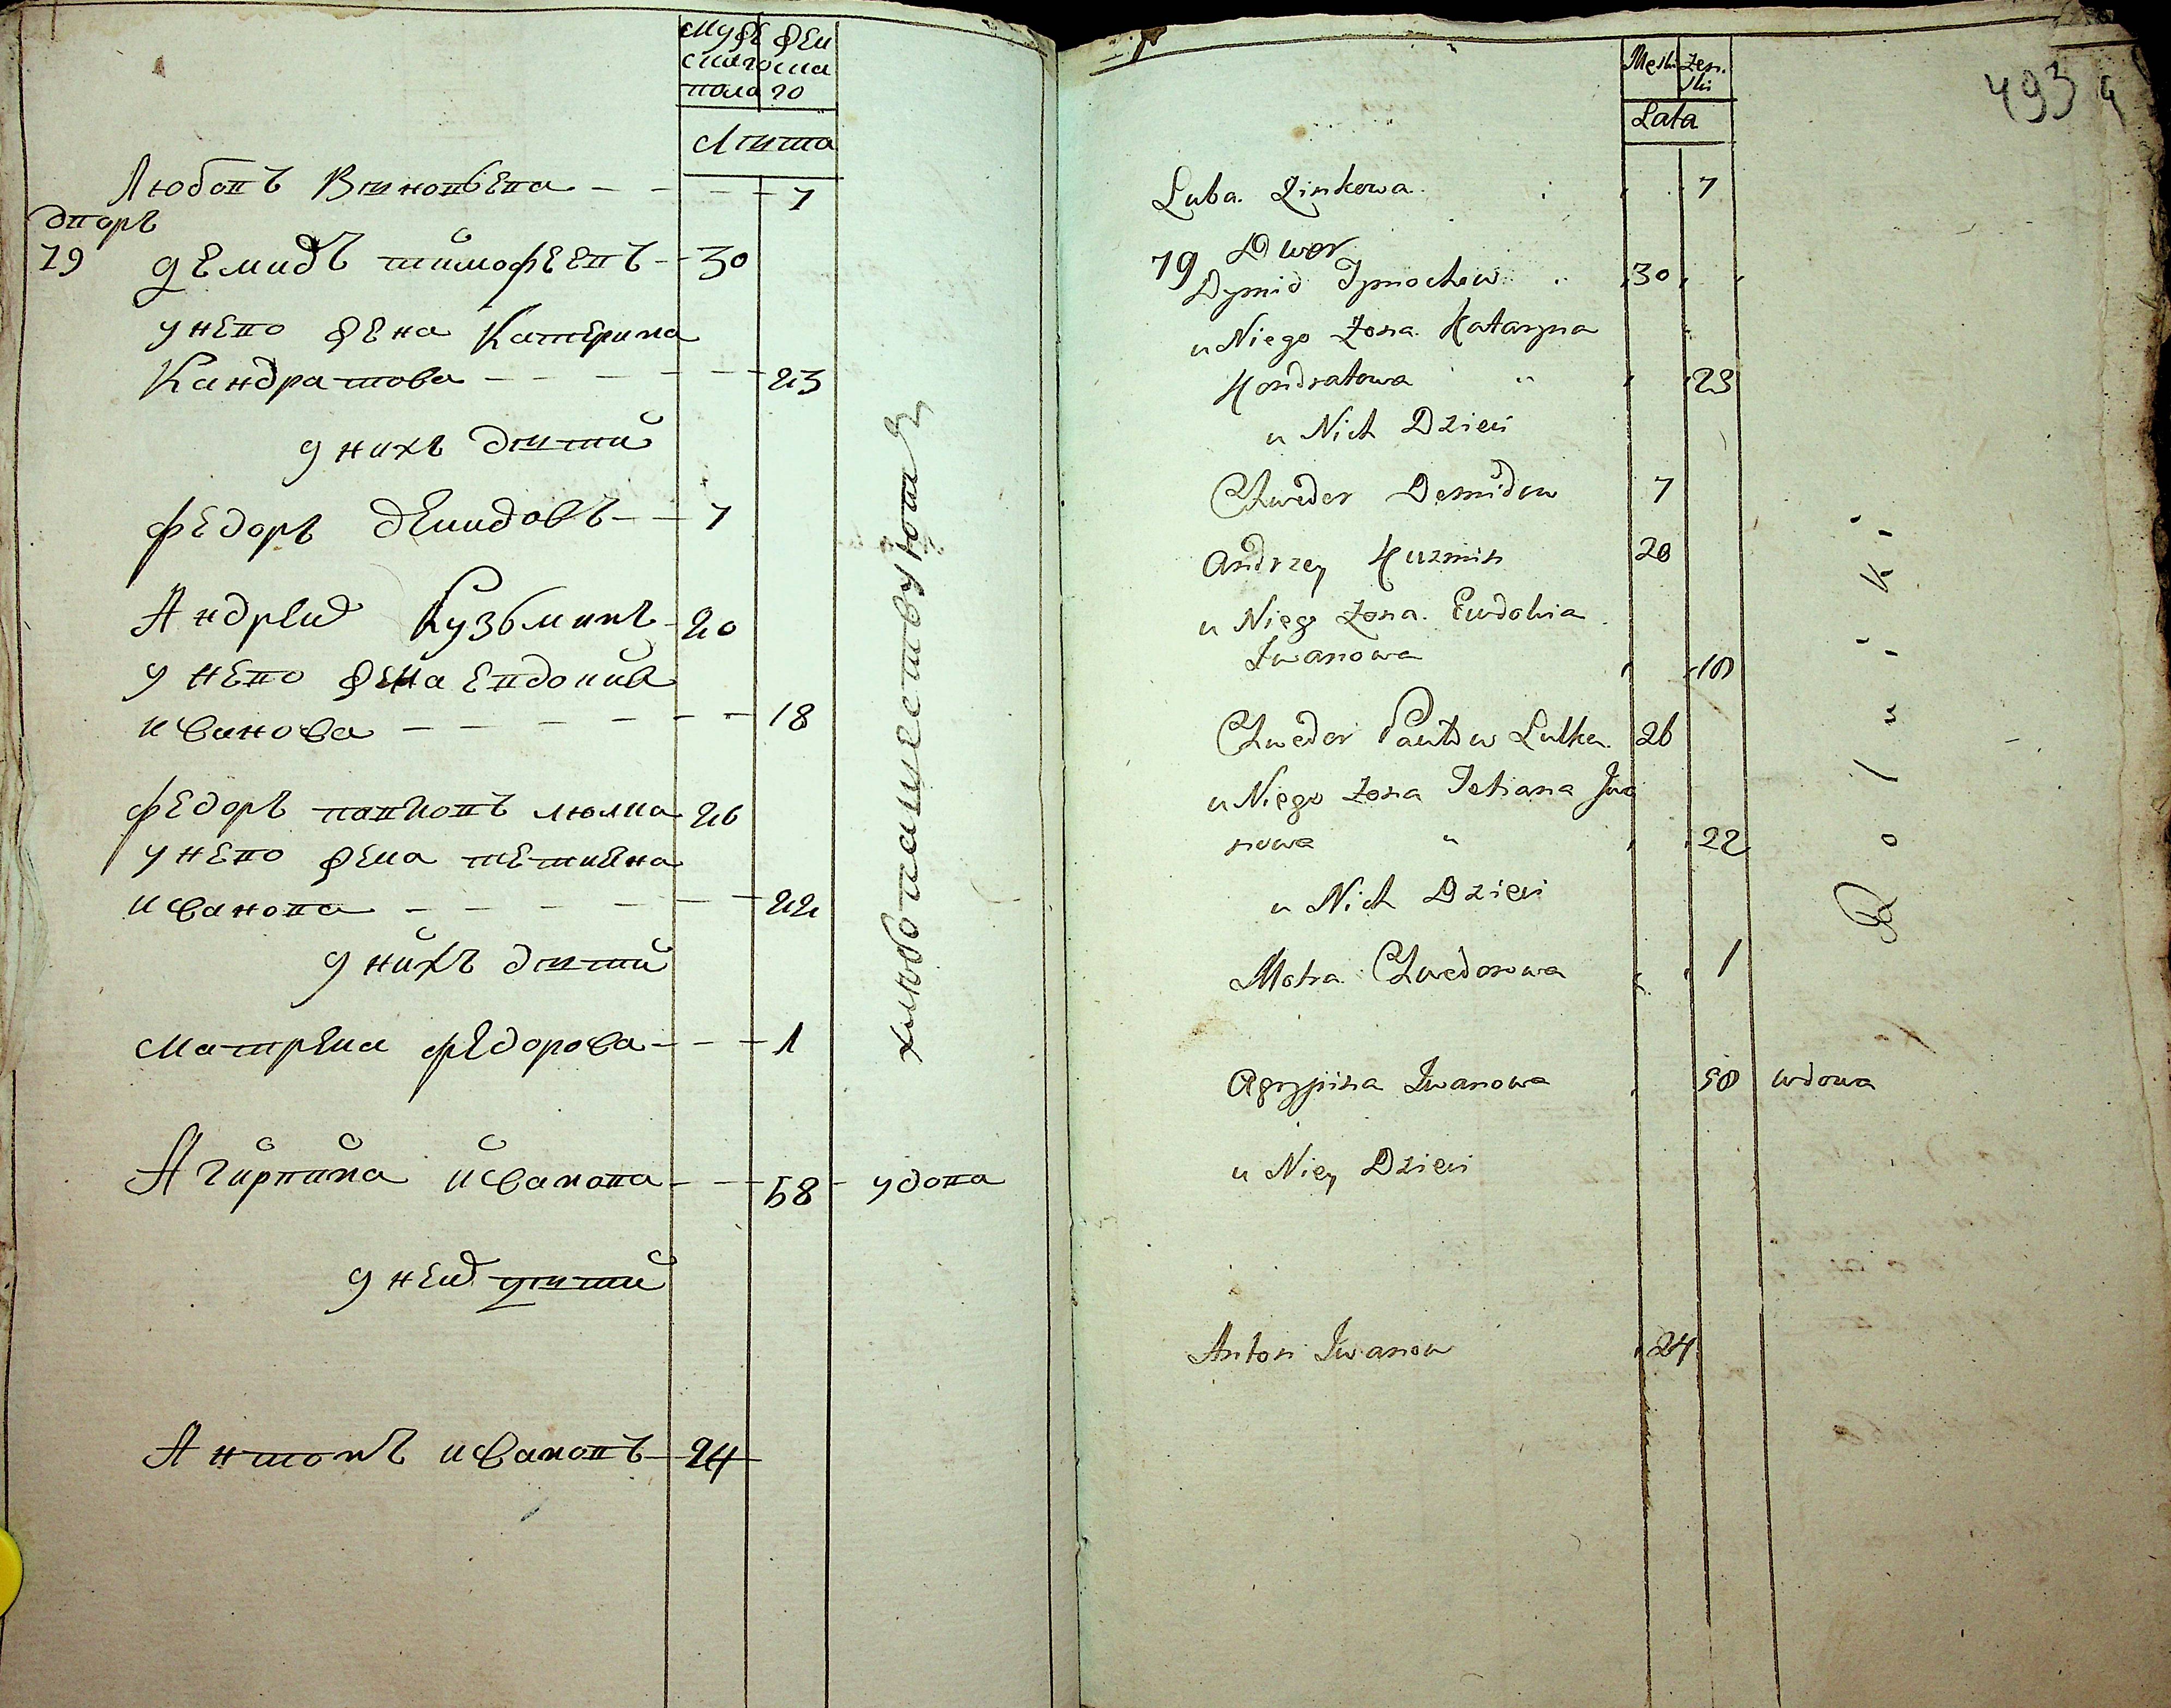 Мужескаго пола
Женскаго
Лѣта
Любовъ Зѣновьева - - - - 7
дворъ
19 Демидъ тимофеевъ - 30
у нево жена Катерина
Кандратова - - - - - 23
у нихъ дѣти
Федоръ демидовъ - - 7
Андрей Кузьминъ - 20
у нево жена евдокия
иванова - - - - - - 18
Федоръ павловъ люлка 26
у нево жена тетияна
иванова - - - - - - 22
у нихъ дѣти
Матрена федорова - - - 1
Агирпина иванова - - 58 - удова
у ней дѣти
Антонъ ивановъ - 24
хлебопашествуютъ
493
Męski
Żeński
Lata
Luba Zinkowa 7
19 Dwor
Dymid Tymochew 30
u Niego Żona Kataryna
Kondratowa 23
u Nich Dzieci
Chwedor Demidow 7
Andrzey Kuzmin 20
u Niego Żona Ewdokia
Iwanowa 18
Chwedor Pawłow Lulka 26
u Niego Żona Tetiana Iwa
nowa 22
u Nich Dzieci
Motra Chwedorowa 1
Agrypina Iwanowa 58 wdowa
u Niey Dzieci
Anton Iwanow 24
Rolniki